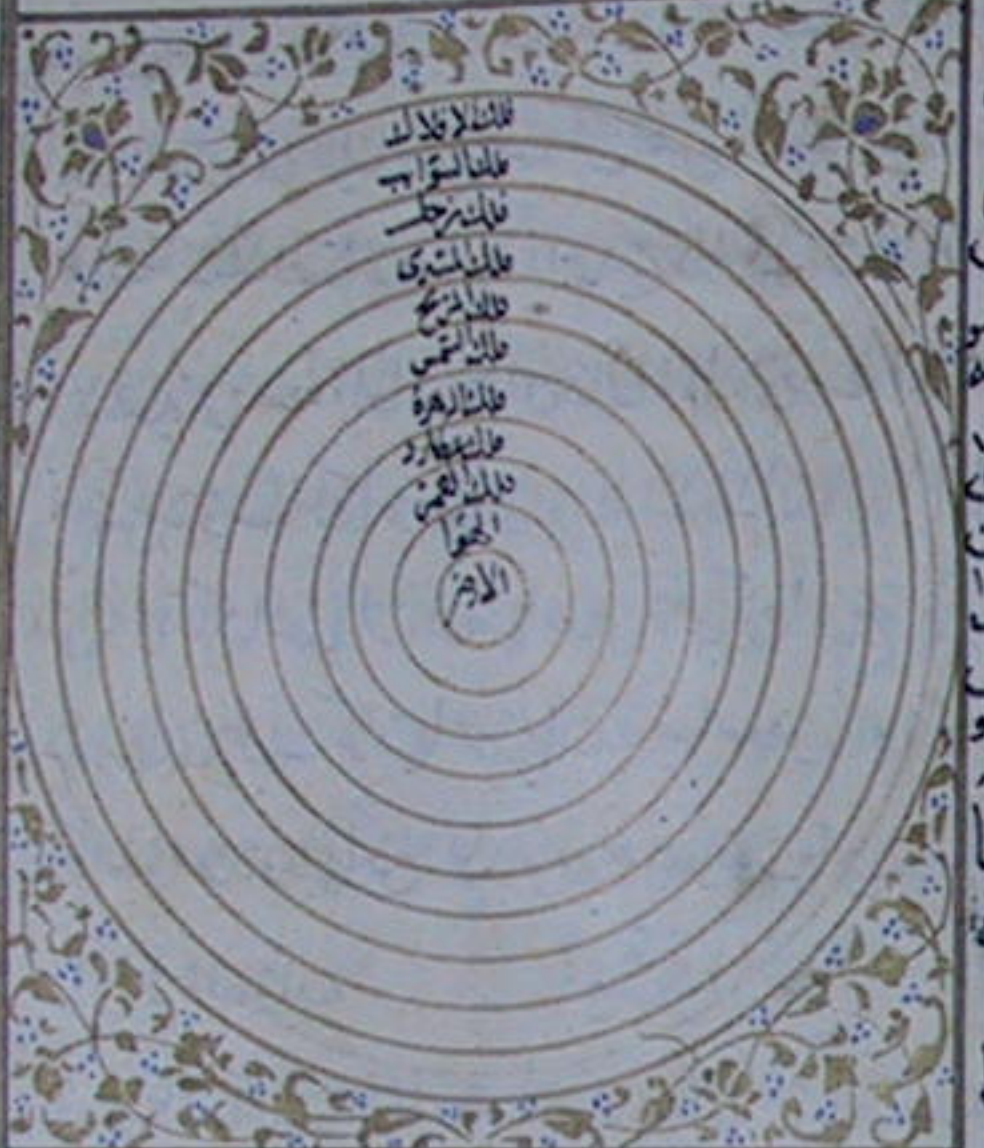 فلك الافلاك
فلك الثوابت
فلك زحل
فلك المشتري
فلك المريخ
فلك الشمس
فلك الزهرة
فلك عطارد
فلك القمر
الهوا
الارض